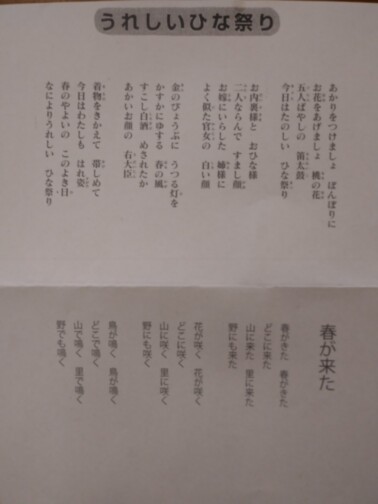 うれしいひな祭り
あかりをつけましょ　ぼんぼりに
お花をあげましょ　桃の花
五人ばやしの　笛太鼓
今日はたのしい　ひな祭り
お内裏様と　おひな様
二人ならんで　すまし顔
お嫁にいらした　姉様に
よく似た官女の　白い顔
金のびょうぶに　うつる灯を
かすかにゆする　春の風
すこし白酒　めされたか
あかいお顔の　右大臣
着物をきかえて　帯しめて
今日はわたしも　はれ姿
春のやよいの　このよき日
なによりうれしい　ひな祭り
春が来た
春がきた　春がきた
どこに来た
山に来た　里に来た
野にも来た
花が咲く　花が咲く
どこに咲く
山に咲く　里に咲く
野にも咲く
鳥が鳴く　鳥が鳴く
どこで鳴く
山で鳴く　里で鳴く
野でも鳴く